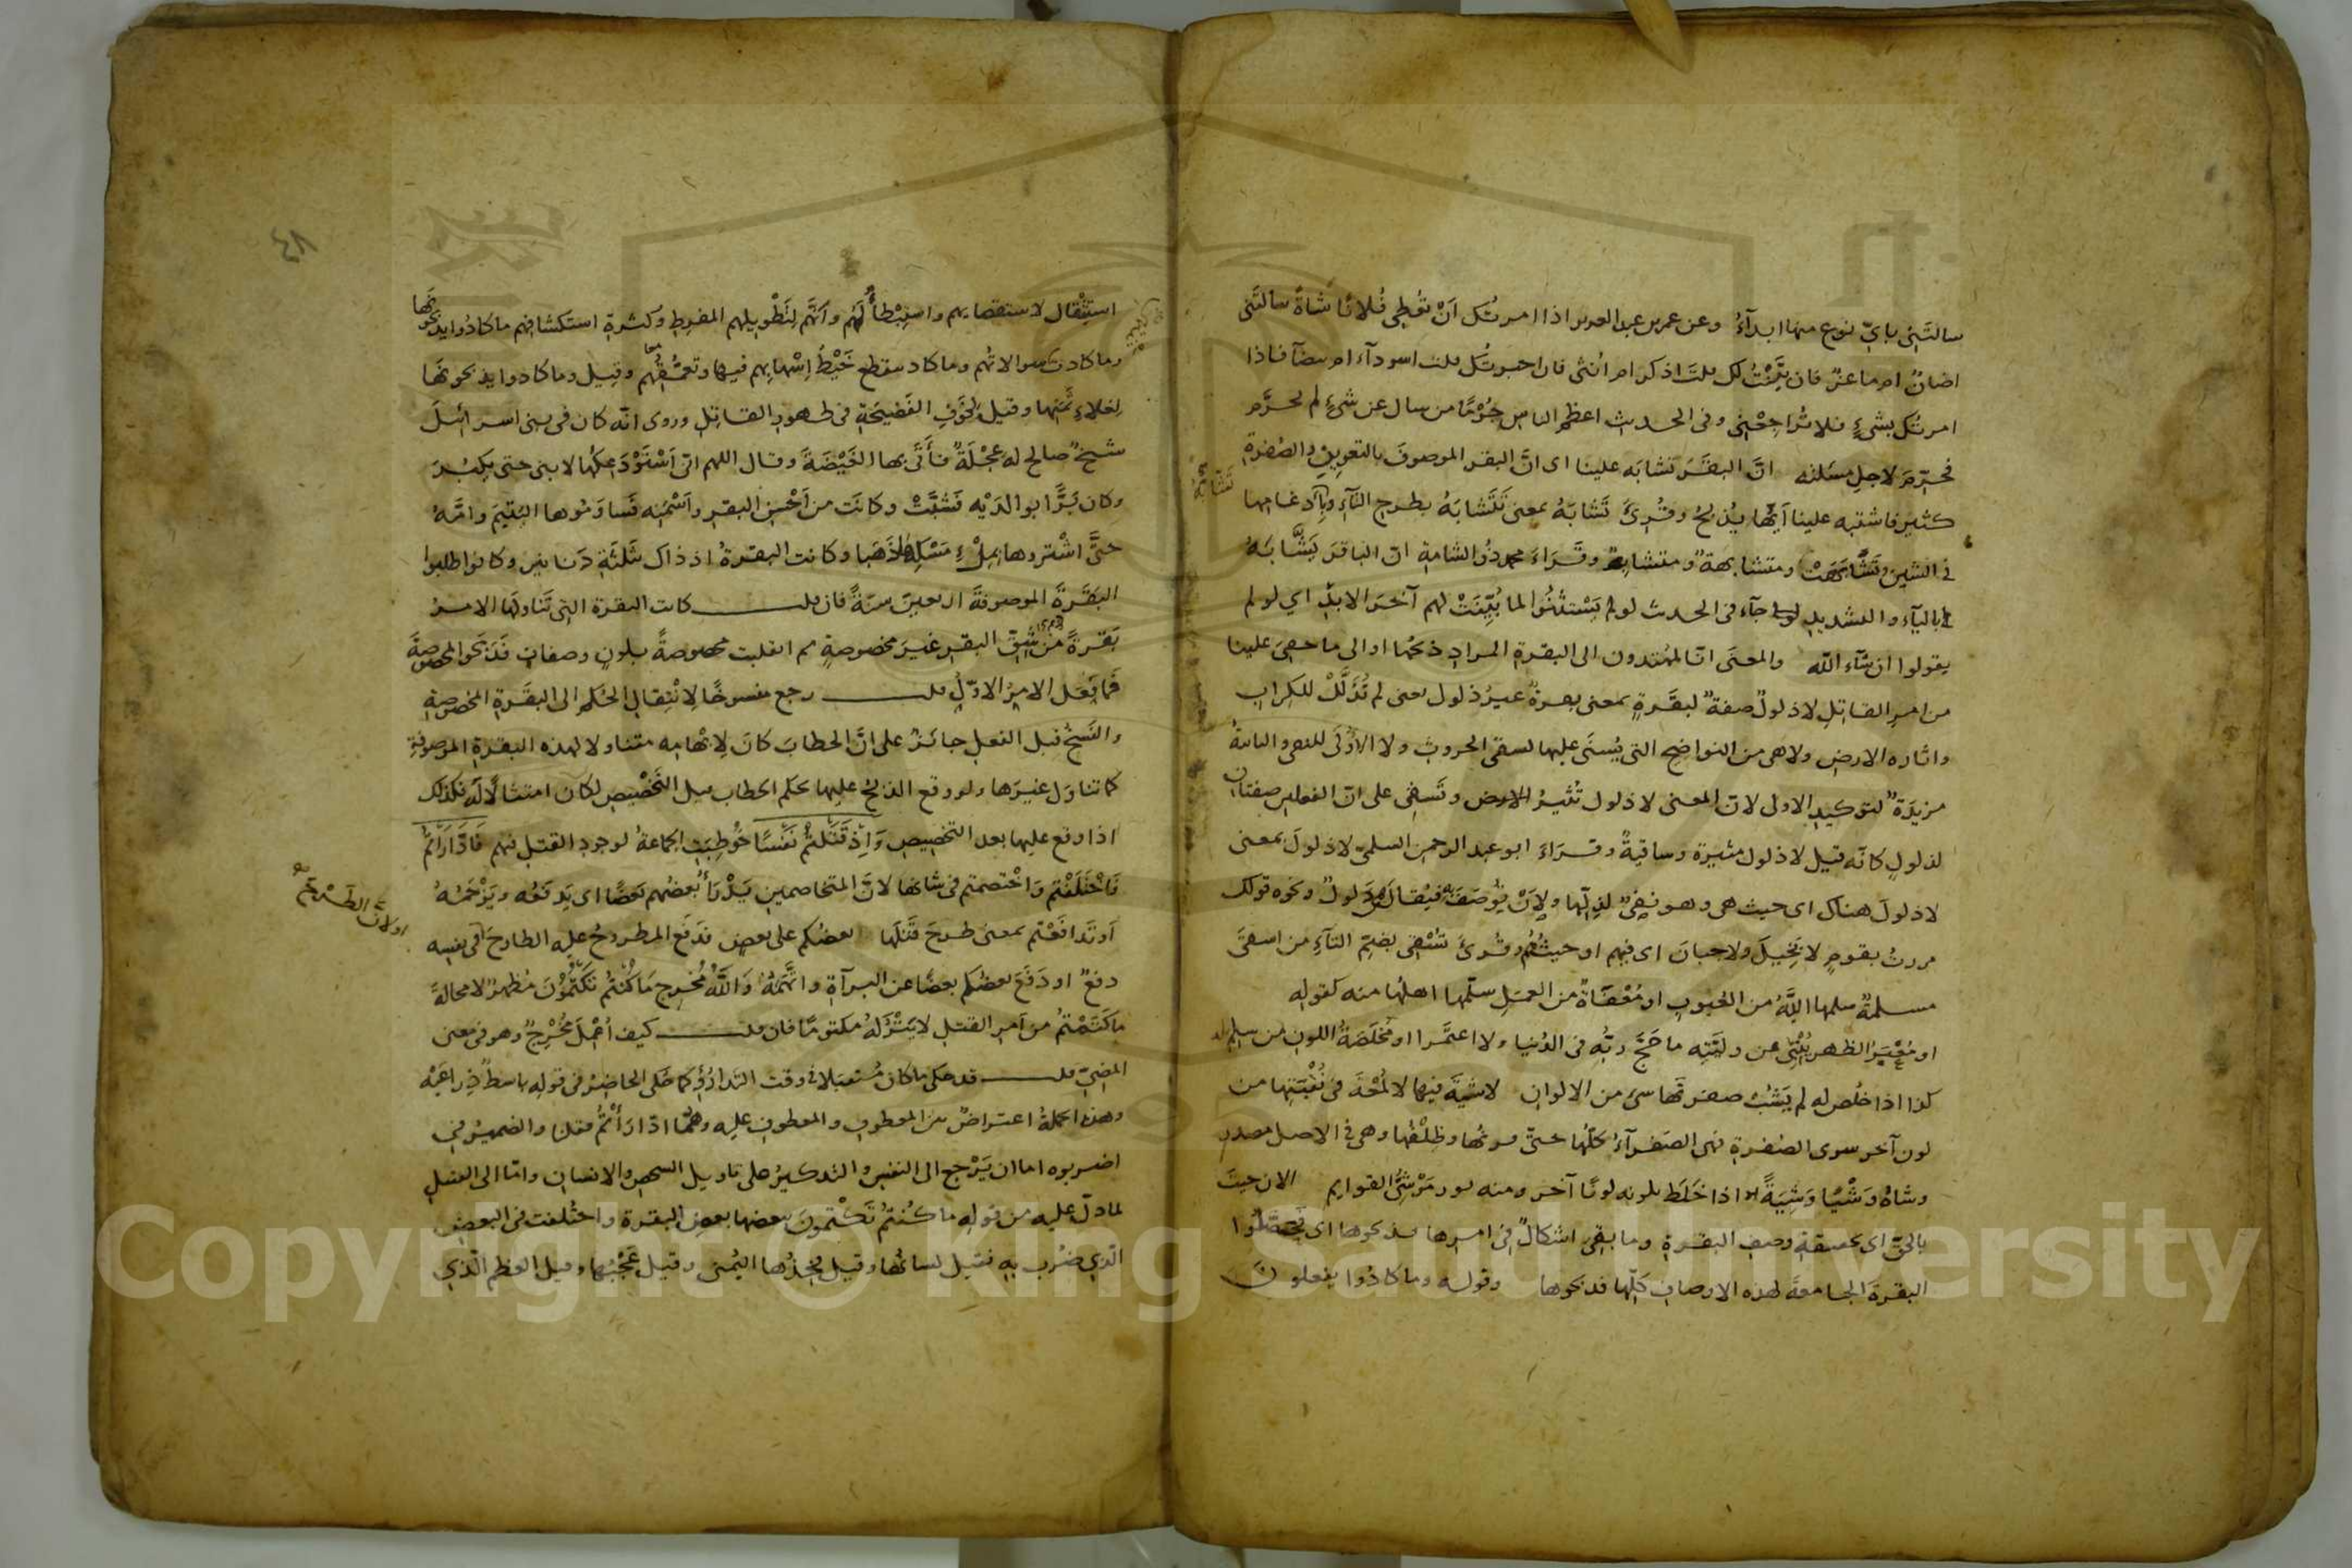 سالتني باي نوع منها ابدأ وعن عمر بن عبد العزيز اذا امرتُك اَنْ تُعطِى فُلانًا شاةً سألتَنى
اضانٌ ام ماعزٌ فان بيَّنْتُ لك قلتَ اذكر ام انثى فان اخبرتُك قلت اسودآء ام بيضآ فاذا
امرتُك بشىءٍ فلا تُراجِعْنِى وفى الحديث اعظم الناس جُرْمًا من سال عن شىءٍ لم يحرَّم
فحُرّمَ لاجل مسئلته انَّ البقَرَ تشابَه علينا اى انَّ البقر الموصوفَ بالتعوينِ والصُفرةِ
تَشَّابَهُ
كثيرٌ فاشتبه علينا اَيّها يُذبحُ وقُرِئَ تَشابَهُ بمعنى تَتَشابَهُ بطرح التآءِ وبادغامها
فى الشين وتَشَّابَهَتْ ومتشابهةٌ ومتشابهٌ وقَرَاءَ محمد ذُو الشامةِ انّ الباقرَ يَشَّابَهُ
بالياء والتشديد جاء فى الحديث لو لم يَسْتثنُوا لما بُيِّنَتْ لهم آخرَ الابدِ اي لو لم
يقولوا ان شآء الله والمعنَى انّا لمهتدون الى البقرة المرادِ ذبحُها او الى ما خفِىَ علينا
من امر القاتل لا ذلولٌ صفةٌ لبقَرةٍ بمعنى بقرةٌ غيرُ ذلول يعنى لم تُذَلَّلْ للكِرابِ
واثارة الارضِ ولا هى من النواضح التى يُسنَى عليها لسقى الحروث ولا الأُولَى للنفى والثانيةُ
مزيدةٌ لتوكيد الاول لانّ المعنى لا ذلول تُثيرُ الارض وتَسقِى على انّ الفعلين صفتان
لذلولٍ كانّه قيل لا ذلول مثيرة وساقيةٌ وقَرَاءَ ابو عبد الرحمن السلمىّ لا ذلولَ بمعنى
لا ذلولَ هناك اى حيث هى وهو نفىٌ لذِلّها ولاَنْ تُوصَفَ به فيُقال هى ذَلولٌ ونحوه قولك
مررتُ بقومٍ لا بَخِيلَ ولا جبانَ اى فيهم او حيثُ هُم وقُرئَ تُسْقِى بضمّ التآءِ من اسقى
مسلمةٌ سلمها اللهُ من العُيوبِ او مُعْفَاةٌ من العمل سلّمها اهلُها منه كقوله
او مُعْبَرُ الظهرِ يُنْبِى عن وليّتِه ما حَجَّ ربُّه فى الدُنيا ولا اعتَمَرا او مُخلَصَةُ اللون من سلم له
كذا اذا خلُص له لم يَشُبْ صفرتَها شىء من الالوان لا شِيَةَ فيها لا لُمْعَةَ فى نُقْبَتِها من
لون آخر سوى الصُفرةِ فهى الصَفرآءُ كلّها حتىّ قرنُها وظِلْفُها وهى فى الاصل مصدر
وشاهُ وَشْيًا وَشِيَةً اذا خَلَط بلونِه لونًا آخر ومنه ثور مَوْشِىُّ القوايم الان جيتَ
بالحقّ اى بحقيقةِ وصفِ البقرةِ وما بقِى اشكالٌ فى امرها فذبحوها اى فحصّلوا
البقرةَ الجامعةَ لهذه الاوصافِ كلّها فذبحوها وقوله وما كادُوا يفعلون
٤٨
استِثْقال لاستقصايهم واستِبْطاءٌ لَهُم واَنّهم لِتَطْوِيلهم المفرِطِ وكثرةِ استكشافهم ما كادُوا يذبحونها
وما كادت سوالاتُهم وما كاد ينقطع خَيْطُ اِسْهابِهم فيها وتعمّقُهم وقيل وما كادوا يذبحونها
لغلاءِ ثَمَنِها وقيل لخوْفِ الفَضيحَةِ فى ظهور القاتِلِ وروى انّه كان فى بنى اسرائلَ
شيخٌ صالح له عِجْلَةٌ فأَتَى بها الغَيْضَةَ وقال اللهم انّى اَسْتَوْدَعكَها لابنى حتى يَكبُرَ
وكان بَرًّا بوالدَيْه فشَبَّتْ وكانَت من اَحْسنِ البقرِ واَسْمَنِه فَساوَمُوها اليَتيمَ وامَّهُ
حتىّ اشْتروها بمِلْءِ مَسْكِها ذَهَبا وكانت البقرةُ اذ ذاك بثَلثَةِ دَنانير وكانوا طلبوا
البقَرةَ الموصوفةَ اربعينَ سنةً فان قلت كانت البقرة التى تَناولَها الامرُ
بَقرةً من شِقّ البقر غيرَ مخصوصةٍ ثم انقلبت مخصوصةً بلونٍ وصفاتٍ فَذبَحوا المخصوصةَ
فما فَعَل الامرُ الاوّلُ قلت رجع منسوخًا لانْتِقالِ الحُكمِ الى البقَرةِ المخصوصةِ
والنَسخُ قبل الفعلِ جائزٌ على انَّ الخطابَ كانَ لاِبْهامِه متناولا لهذه البقرةِ الموصوفةِ
كما تناوَل غيرَها ولو وقع الذبحُ عليها بحكم الخطاب قبل التَخْصِيصِ لكان امتثالاً له فكذلك
اذا وقع عليها بعد التخصيصِ وَاِذْ قَتَلْتُمْ نَفْسًا خُوطِبَتِ الجماعةُ لوجودِ القتل فيهم فَادَّارَأْتُمْ
فاخْتَلَفْتم وَاخْتصمتم فى شانها لانّ المتخاصمين يَدْرَأُ بَعضُهم بَعضًا اى يَدفَعُه ويَزْحَمُهُ
اَو تَدافَعْتم بمعنى طرحَ قَتْلَها بعضُكم على بعضٍ فدفَع المطروحُ عليه الطارحَ
او لانّ الطَرْحَ فى نفسِه
دفعٌ او دَفَعَ بعضُكم بعضًا عن البرآةِ واتّهَمَهُ وَاللَّهُ مُخْرِجٌ مَا كُنْتُمْ تَكْتُمُوْنَ مُظهِرٌ لا محالةَ
ما كتَمْتُمْ من اَمرِ القتلِ لا يَتْرُكُهُ مكتومًا فان قلت كيف اُعْمِلَ مُخْرِجٌ وهو فى معنى
المضىّ قلت قد حكى ما كان مُستقبَلا فى وقت التَدارُؤِ كما حَكى الحاضِرُ فى قوله باسطٌ ذِراعَيْه
وهذه الجملةُ اعتراضٌ بين المعطوفِ والمعطوفِ عليه وهُما ادّارَأْتُمْ فقلنا والضميرُ فى
اضربوه اما ان يَرْجع الى النفس والتذكيرُ على تاويل الشخص والانسان وامّا الى القتيلِ
لما دلّ عليه من قوله ما كُنتُمْ تَكْتُمونَ ببعضها ببعضِ البقرة واختُلفت فى البعضِ
الّذي ضُرِب به فقيل لسانُها وقيل فَخِذُها اليُمنى وقيل عَجْبُها وقيل العظم الّذي